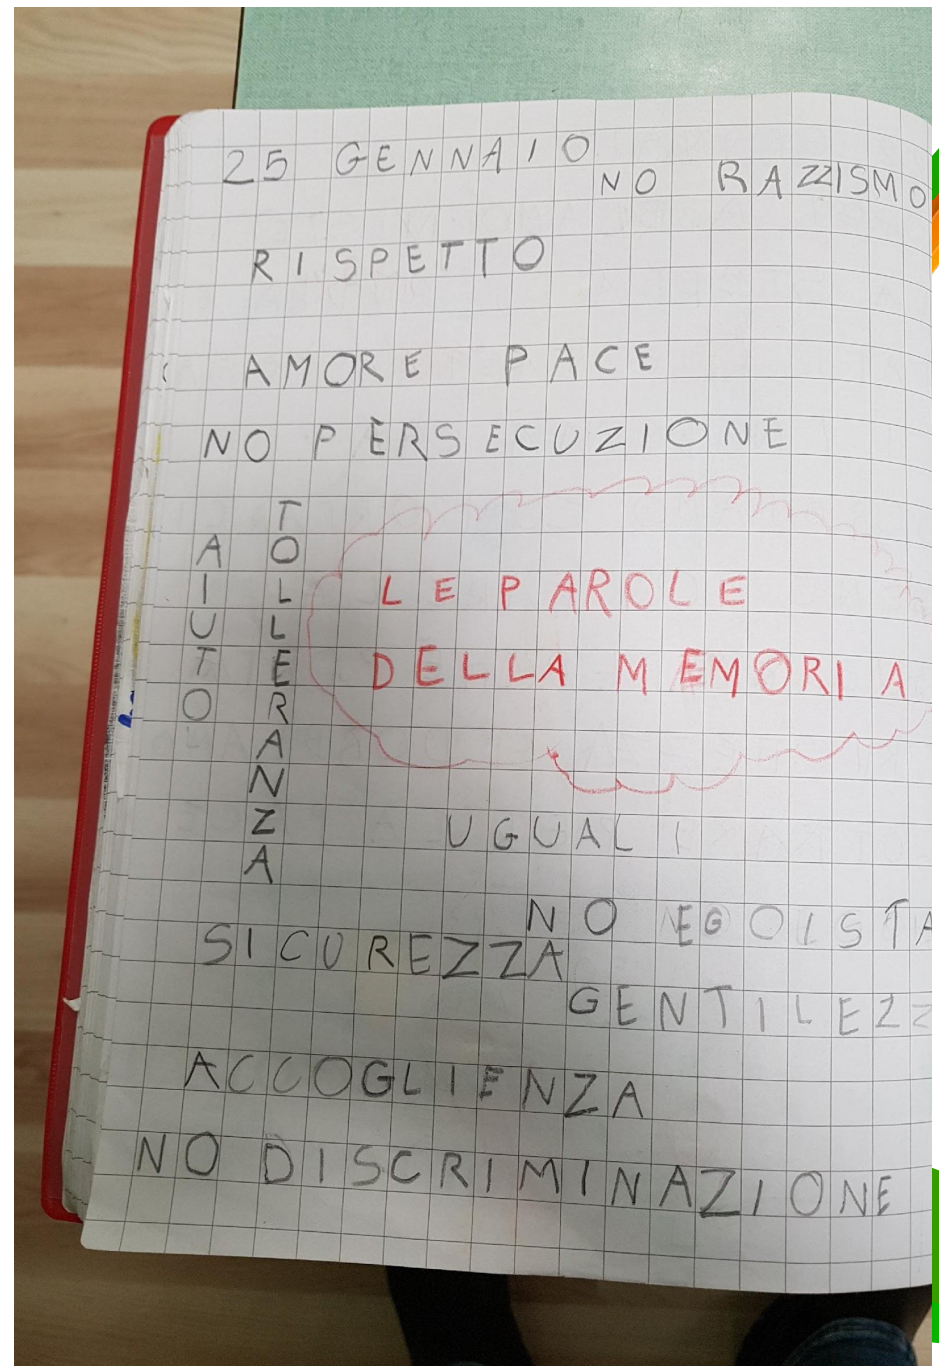 25 GENNAIO
NO RAZZISMO
RISPETTO
AMORE PACE
NO PERSECUZIONE
AIUTO
TOLLERANZA
LE PAROLE
DELLA MEMORIA
UGUALI
NO EGOISTA
SICUREZZA
GENTILEZZ
ACCOGLIENZA
NO DISCRIMINAZIONE